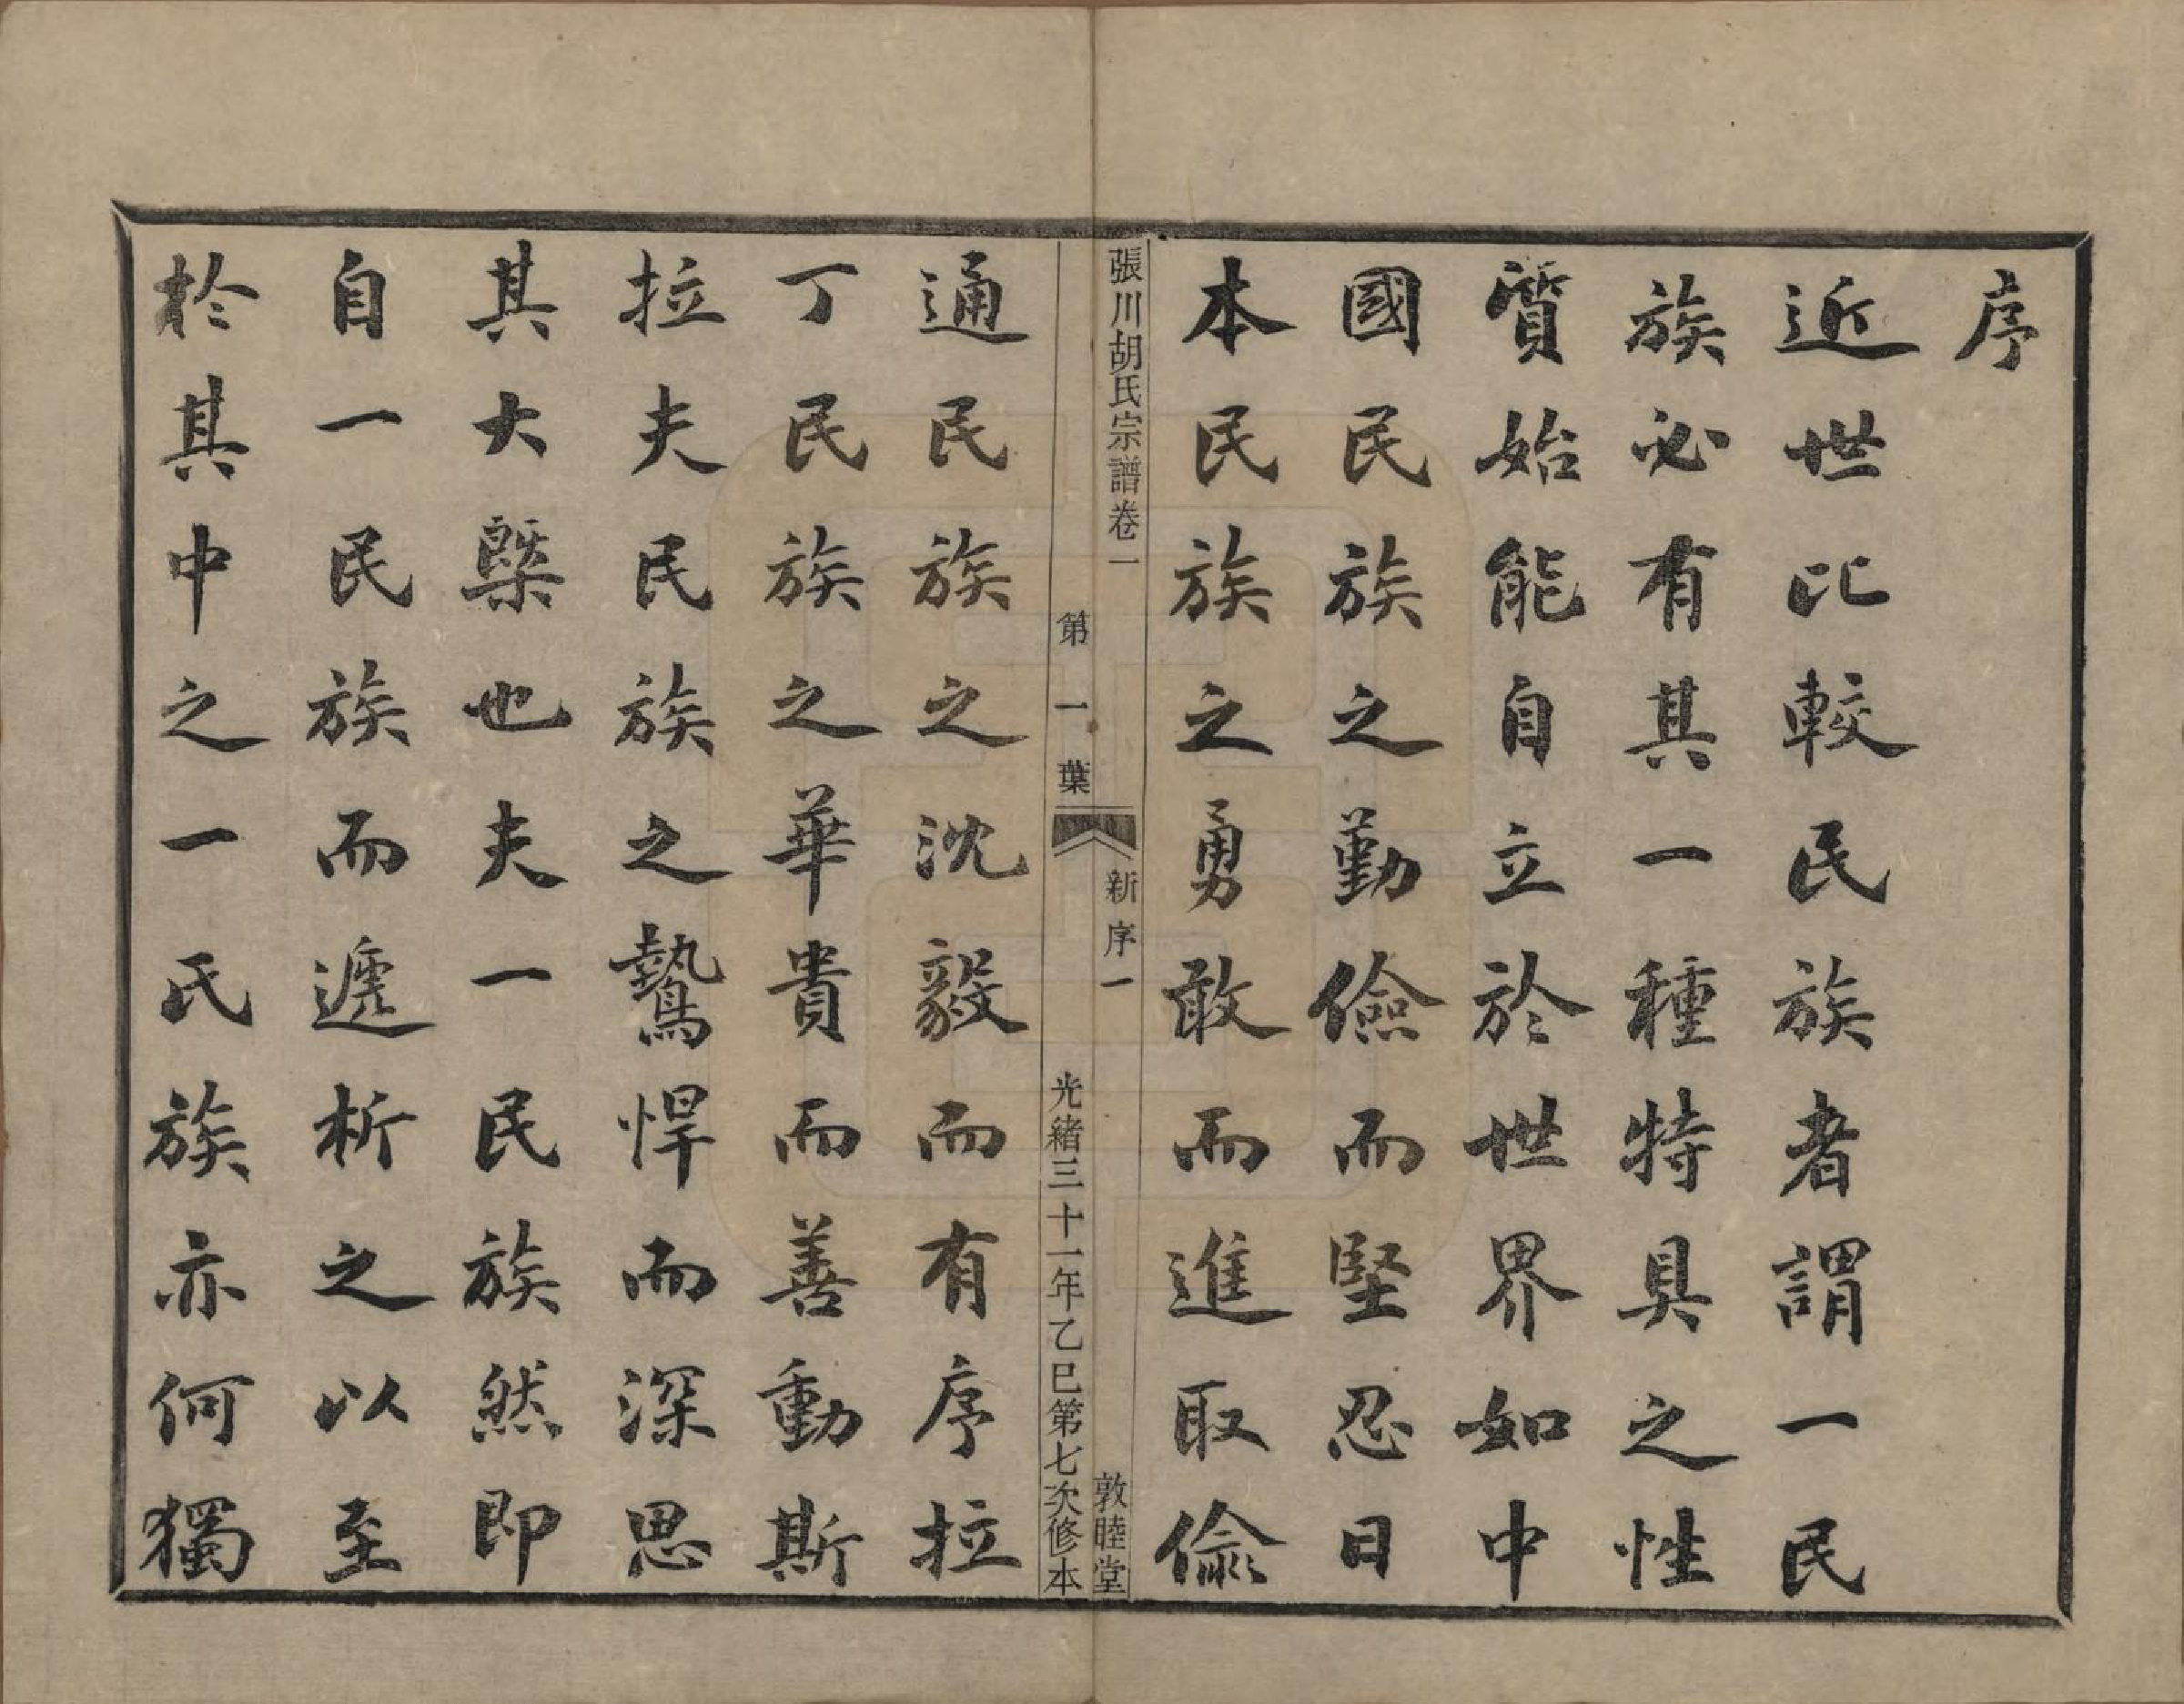 序
近世比較民族者謂一民
族必有其一種特具之性
質始能自立於世界如中
國民族之勤儉而堅忍日
本民族之勇敢而進取偸
張川胡氏宗譜卷一
新序一
敦睦堂
第一葉
光緒三十一年乙巳第七次修本
通民族之沈毅而有序拉
丁民族之華貴而善動斯
拉夫民族之鷙悍而深思
其大槩也夫一民族然即
自一民族而遞析之以至
於其中之一氏族亦何獨